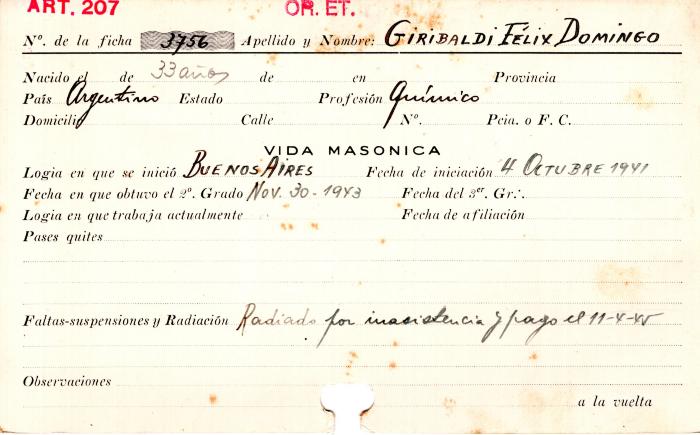 ART. 207 OR. ET.
Nº. de la ficha 3756 Apellido y Nombre: GIRIBALDI FÉLIX DOMINGO
Nacido el de 33 años de en Provincia
País Argentino Estado Profesión Químico
Domicilio Calle Nº. Pcia. o F. C.
VIDA MASONICA
Logia en que se inició BUENOS AIRES Fecha de iniciación 4 OCTUBRE 1941
Fecha en que obtuvo el 2º. Grado NOV. 30-1943 Fecha del 3er. Gr∴
Logia en que trabaja actualmente Fecha de afiliación
Pases quites
Faltas-suspensiones y Radiación Radiado por inasistencia y pago el 11-4-45
Observaciones
a la vuelta